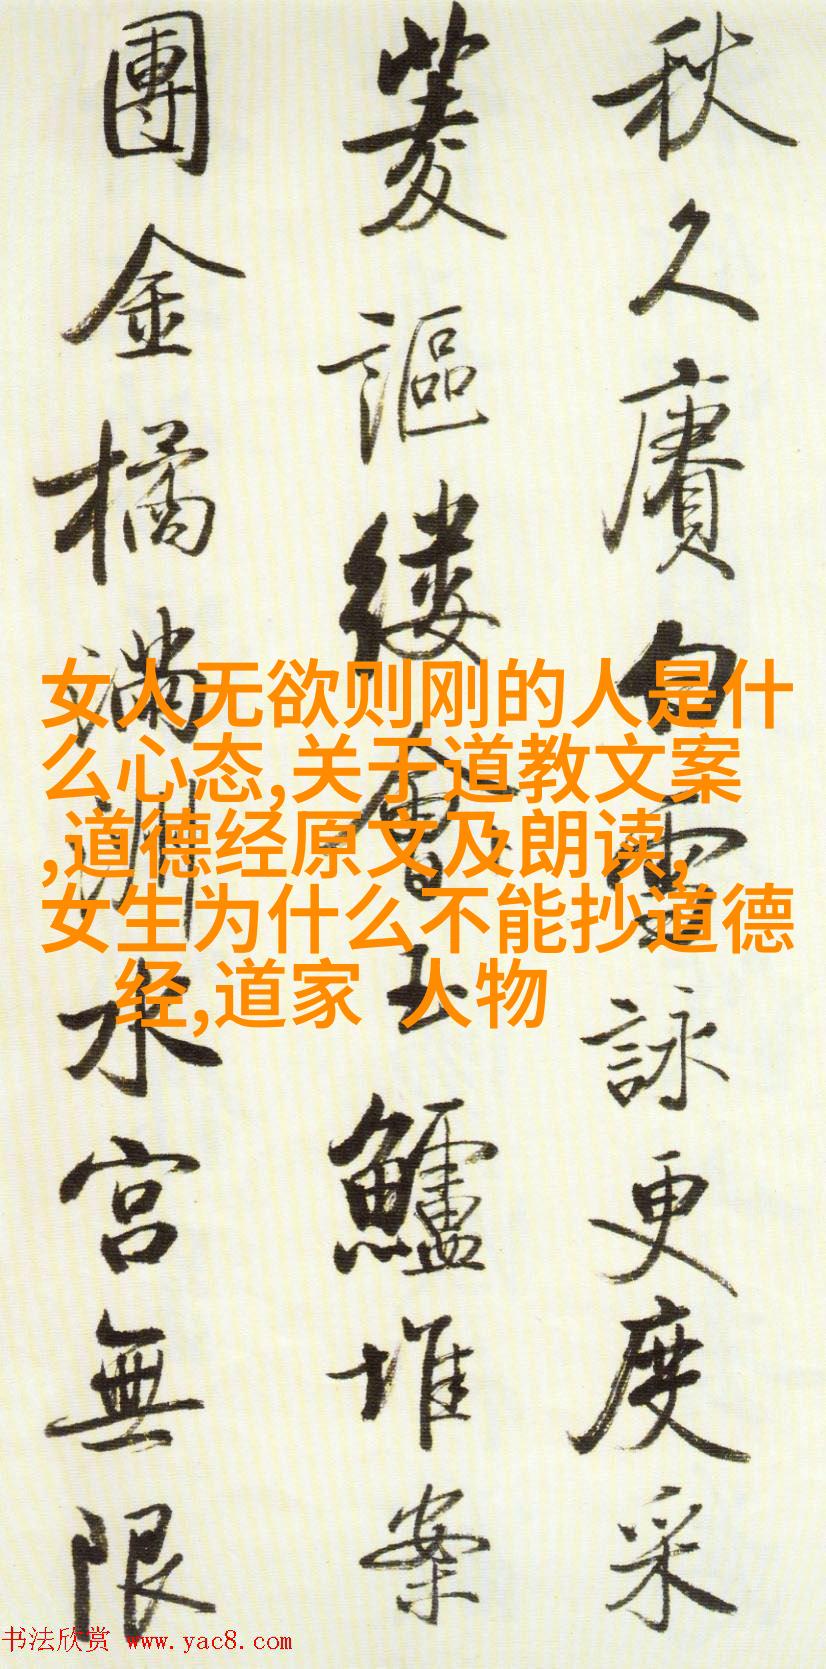 秋久賡白雪詠更度采
菱謳縷會玉鱸堆案
團金橘滿洲水宮無限
女人无欲则刚的人是什
么心态,关于道教文案
,道德经原文及朗读,
女生为什么不能抄道德
经,道家 人物
书法欣赏 www.yac8.com